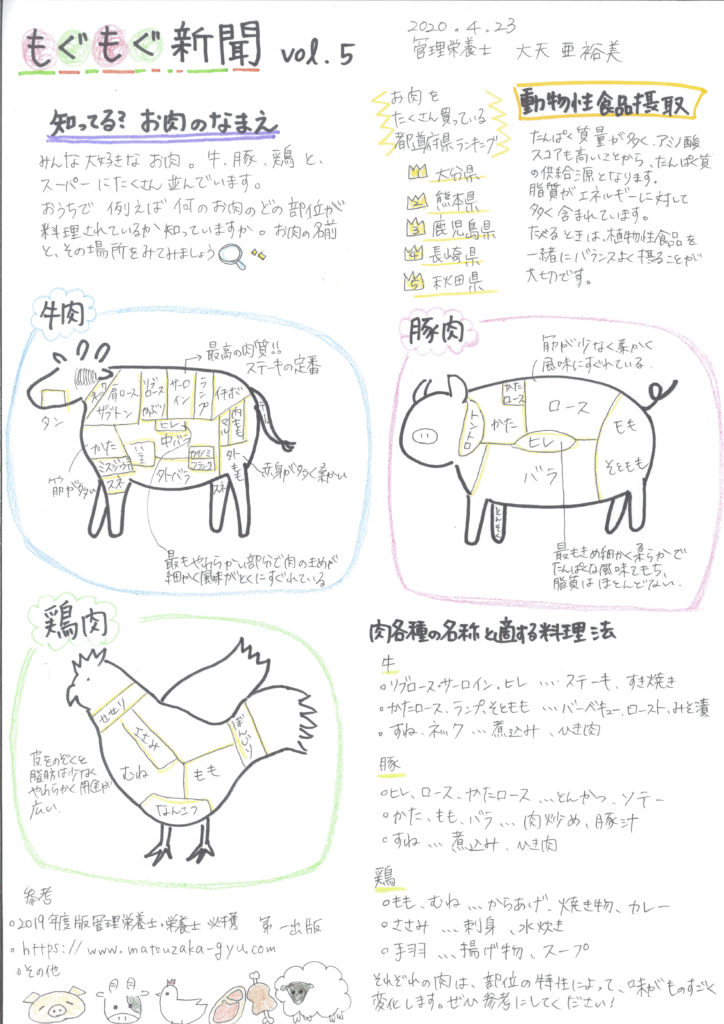 もぐもぐ新聞 vol.5
2020.4.23
管理栄養士 大天 亜裕美
知ってる? お肉のなまえ
みんな大好きな お肉。牛、豚、鶏 と、
スーパーにたくさん並んでいます。
おうちで 例えば 何のお肉のどの部位が
料理されているか知っていますか。お肉の名前
と、その場所をみてみましょう
お肉を
たくさん買っている
都道府県ランキング
1 大分県
2 熊本県
3 鹿児島県
4 長崎県
5 秋田県
動物性食品摂取
たんぱく質量が多く、アミノ酸
スコアも高いことから、たんぱく質
の供給源となります。
脂質がエネルギーに対して
多く含まれています。
たべるときは、植物性食品を
一緒にバランスよく摂ることが
大切です。
牛肉
最高の肉質!!
ステーキの定番
タン
ネック
肩ロース
ザブトン
リブロース
かぶり
サーロイン
ランプ
イチボ
ヒレ
中バラ
内もも
マル
かた
ミスジウデ
スネ
外バラ
カイノミ
フランク
外もも
スネ
筋が多い
赤身が多く柔かい
最もやわらかい部分で肉のきめが
細かく風味がとくにすぐれている
豚肉
筋が少なく柔かく
風味にすぐれている
トントロ
かたロース
かた
ロース
ヒレ
バラ
もも
そともも
とんそく
最もきめ細かく柔らかで
たんぱくな風味をもち、
脂質は ほとんどない。
鶏肉
せせり
ささみ
むね
もも
ぼんじり
なんこつ
皮をのぞくと
脂肪は少なく
やわらかく用途が
広い
肉各種の名称と適する料理法
牛
○リブロース・サーロイン、ヒレ …. ステーキ、すき焼き
○かたロース、ランプ、そともも …. バーベキュー、ロースト、みそ漬
○すね、ネック … 煮込み、ひき肉
豚
○ヒレ、ロース、かたロース … とんかつ、ソテー
○かた、もも、バラ … 肉炒め、豚汁
○すね … 煮込み、ひき肉
鶏
○もも、むね … からあげ、焼き物、カレー
○ささみ … 刺身、水炊き
○手羽 … 揚げ物、スープ
それぞれの肉は、部位の特性によって、味がものすごく
変化します。ぜひ参考にしてください!
参考
○2019年度版管理栄養士・栄養士 必携 第一出版
○https://www.matsuzaka-gyu.com
○その他